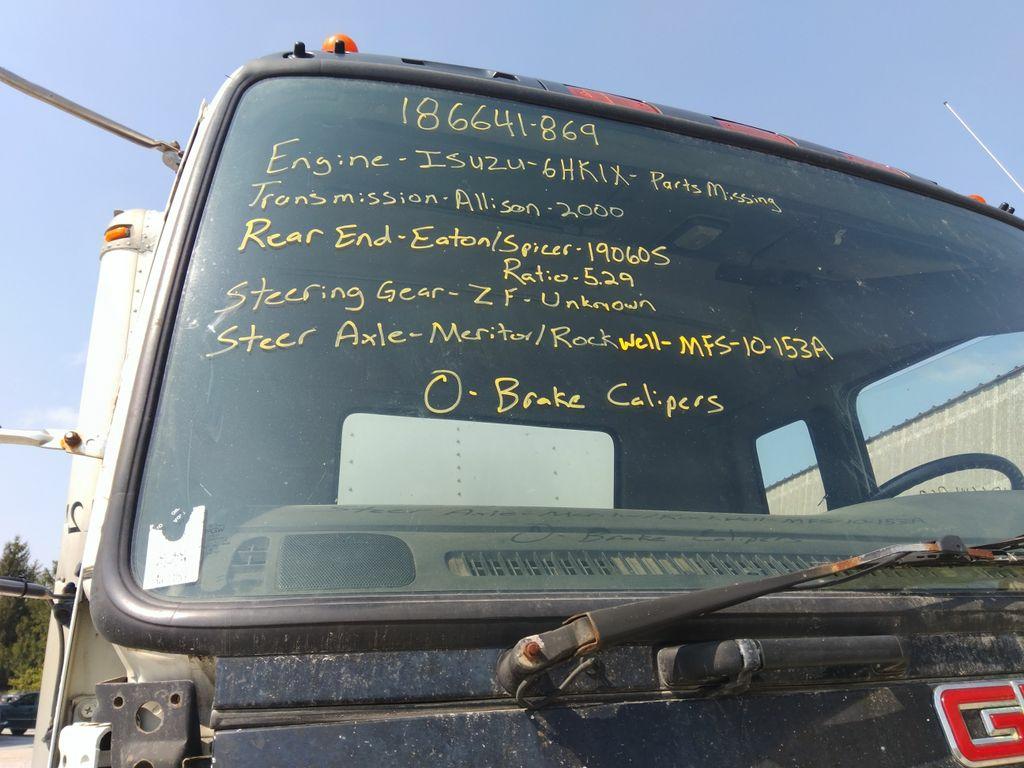 186641-869
Engine-Isuzu-6HK1X-Parts Missing
Transmission-Allison-2000
Rear End-Eaton/Spicer-19060S
Ratio-5.29
Steering Gear-ZF-Unknown
Steer Axle-Meritor/Rockwell-MFS-10-153A
O-Brake Calipers